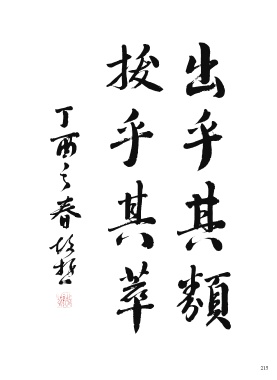 出乎其類
拔乎其萃
丁酉之春
215